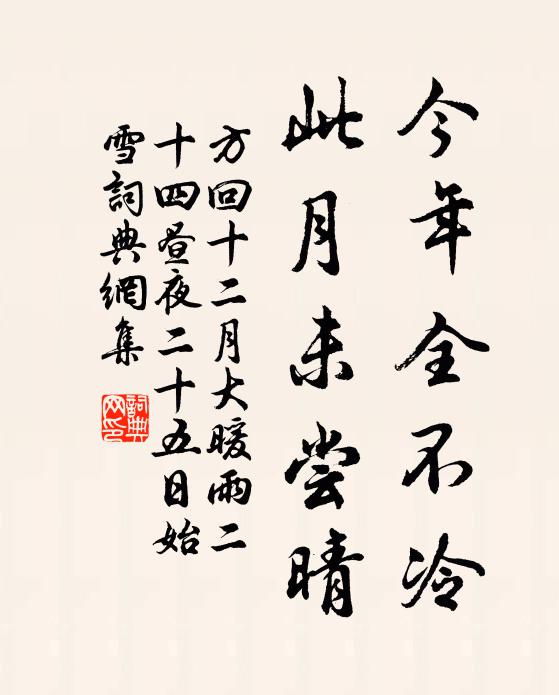 今年全不冷
此月未尝晴
方回十二月大暖雨二
十四昼夜二十五日始
雪詞典網集
詞典
网印